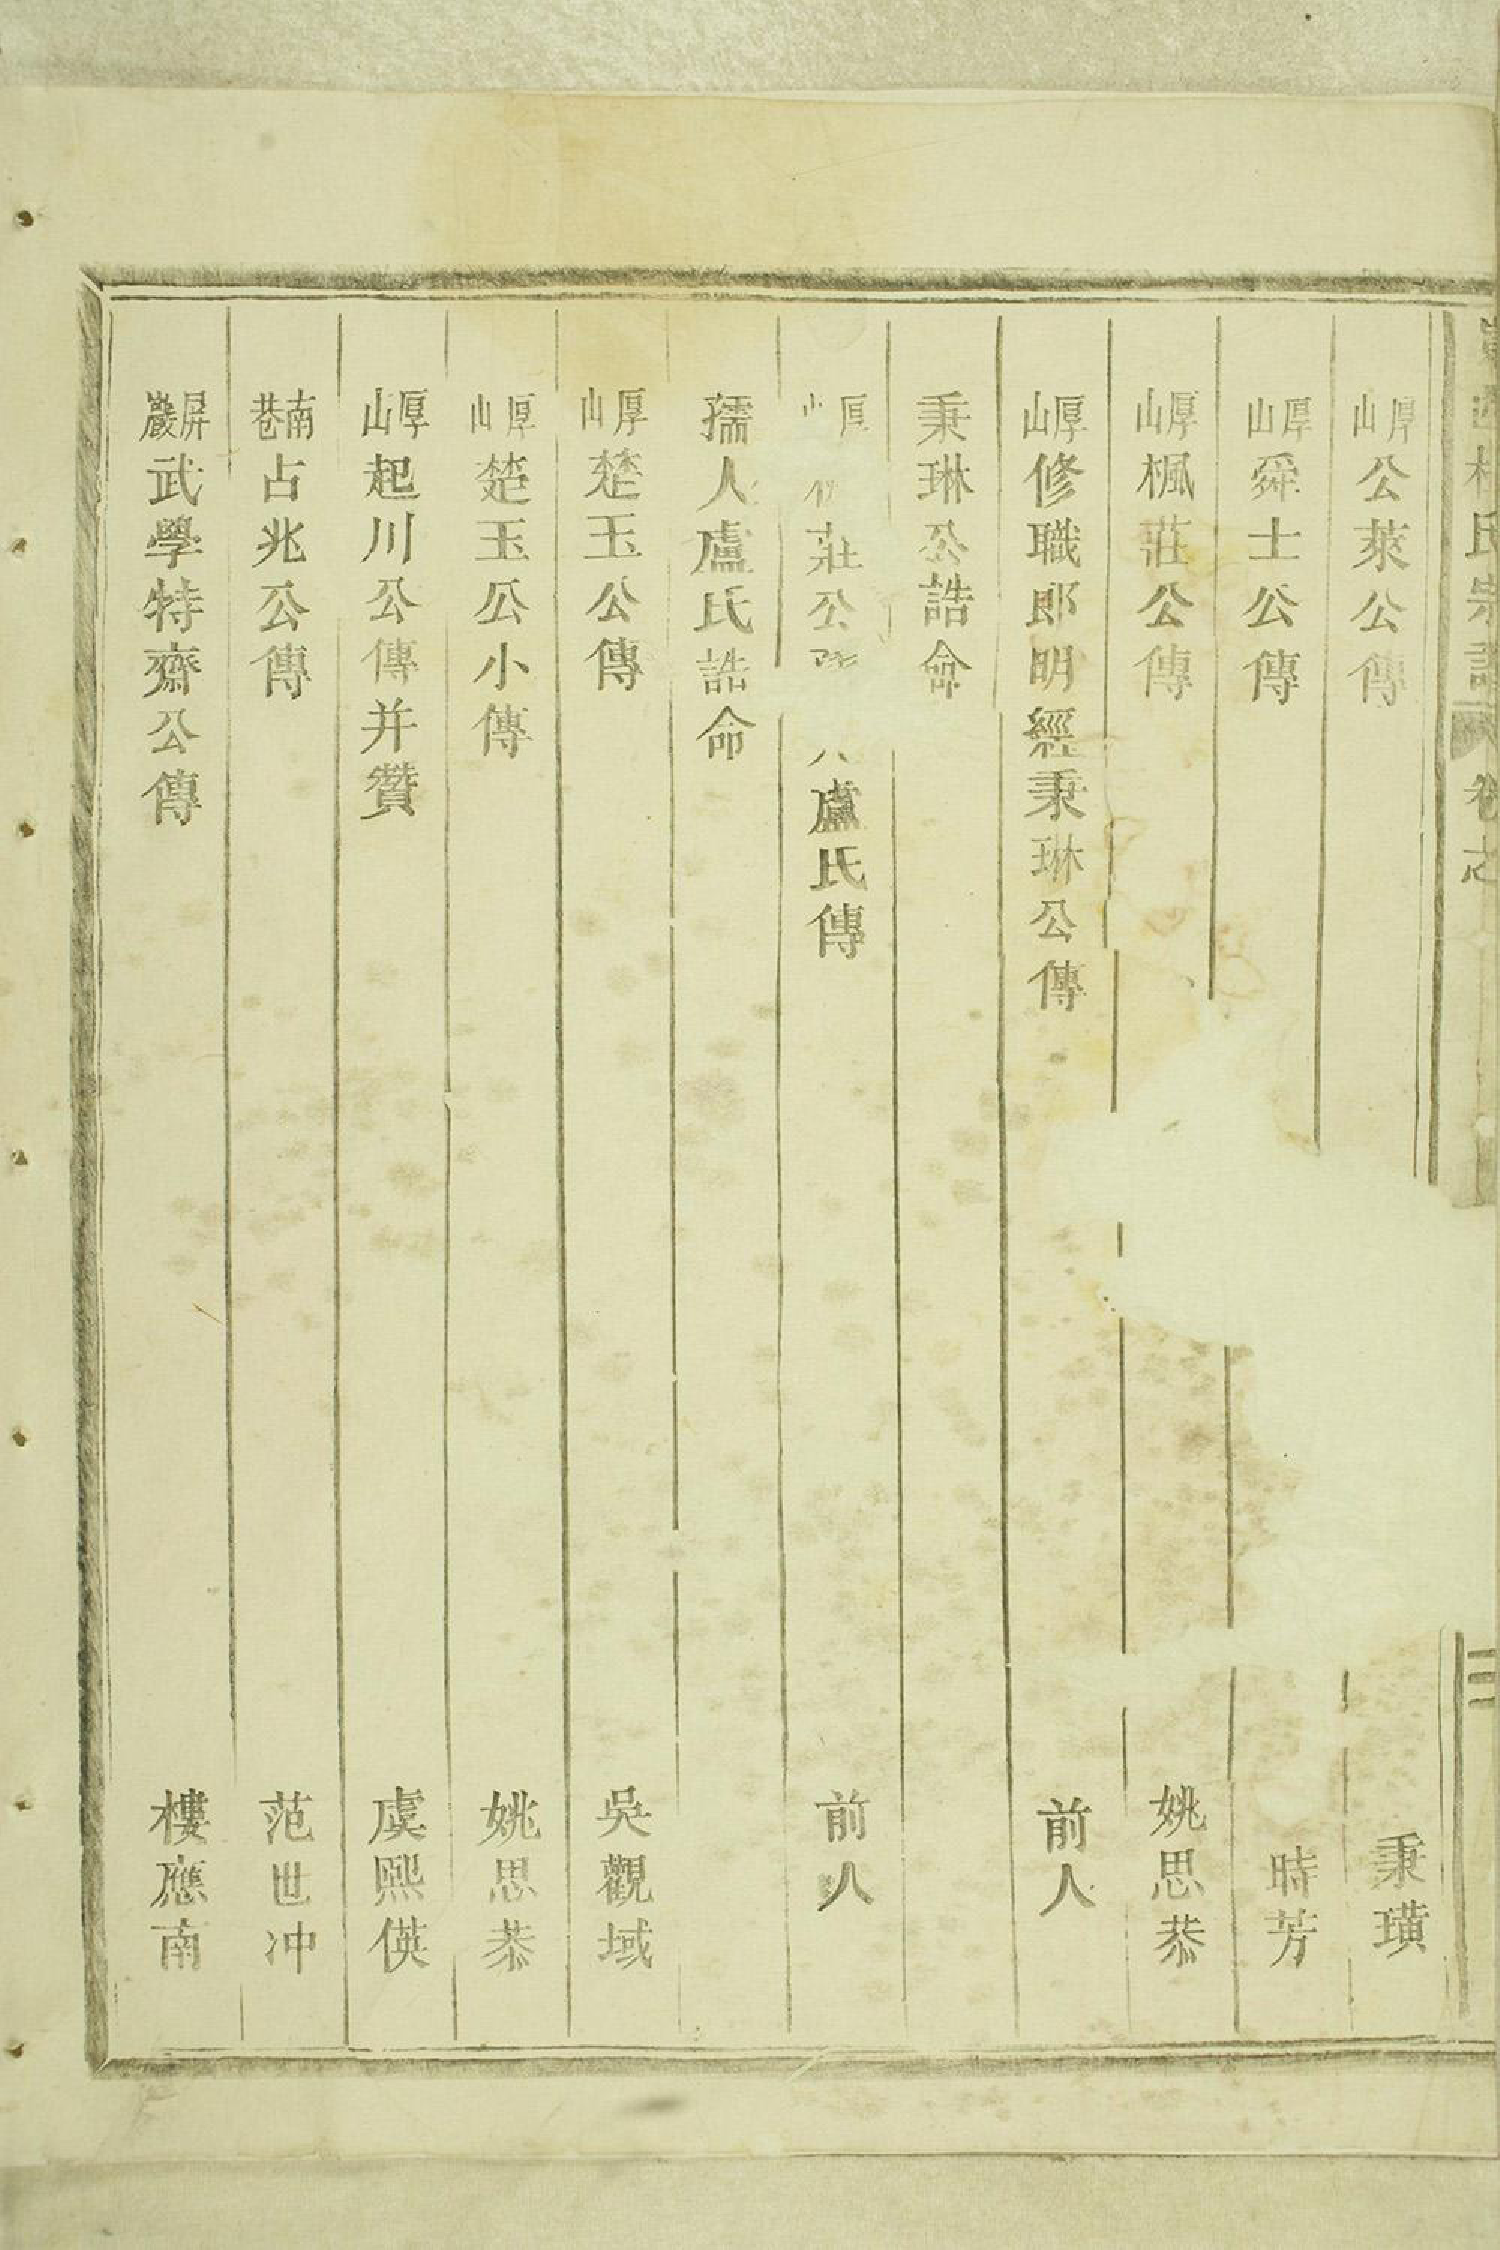 氏宗譜 卷之 二
厚山公萊公傳 秉璜
厚山舜士公傳 時芳
厚山楓莊公傳 姚思恭
厚山修職郎明經秉琳公傳 前人
秉琳公誥命
厚山 莊公 盧氏傳 前人
孺人盧氏誥命
厚山楚玉公傳 吳觀域
厚山楚玉公小傳 姚思恭
厚山起川公傳并贊 虞熙偀
南巷占兆公傳 范世冲
屏巖武學特齋公傳 樓應南